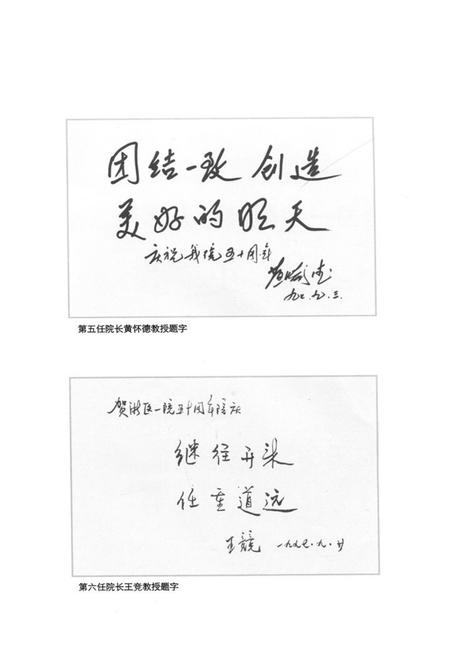 团结一致 创造
美好的明天
庆祝我院五十周年
黄怀德
九七.九.三.
第五任院长黄怀德教授题字
贺浙医一院五十周年院庆
继往开来
任重道远
王竞 一九九七.九.廿
第六任院长王竞教授题字